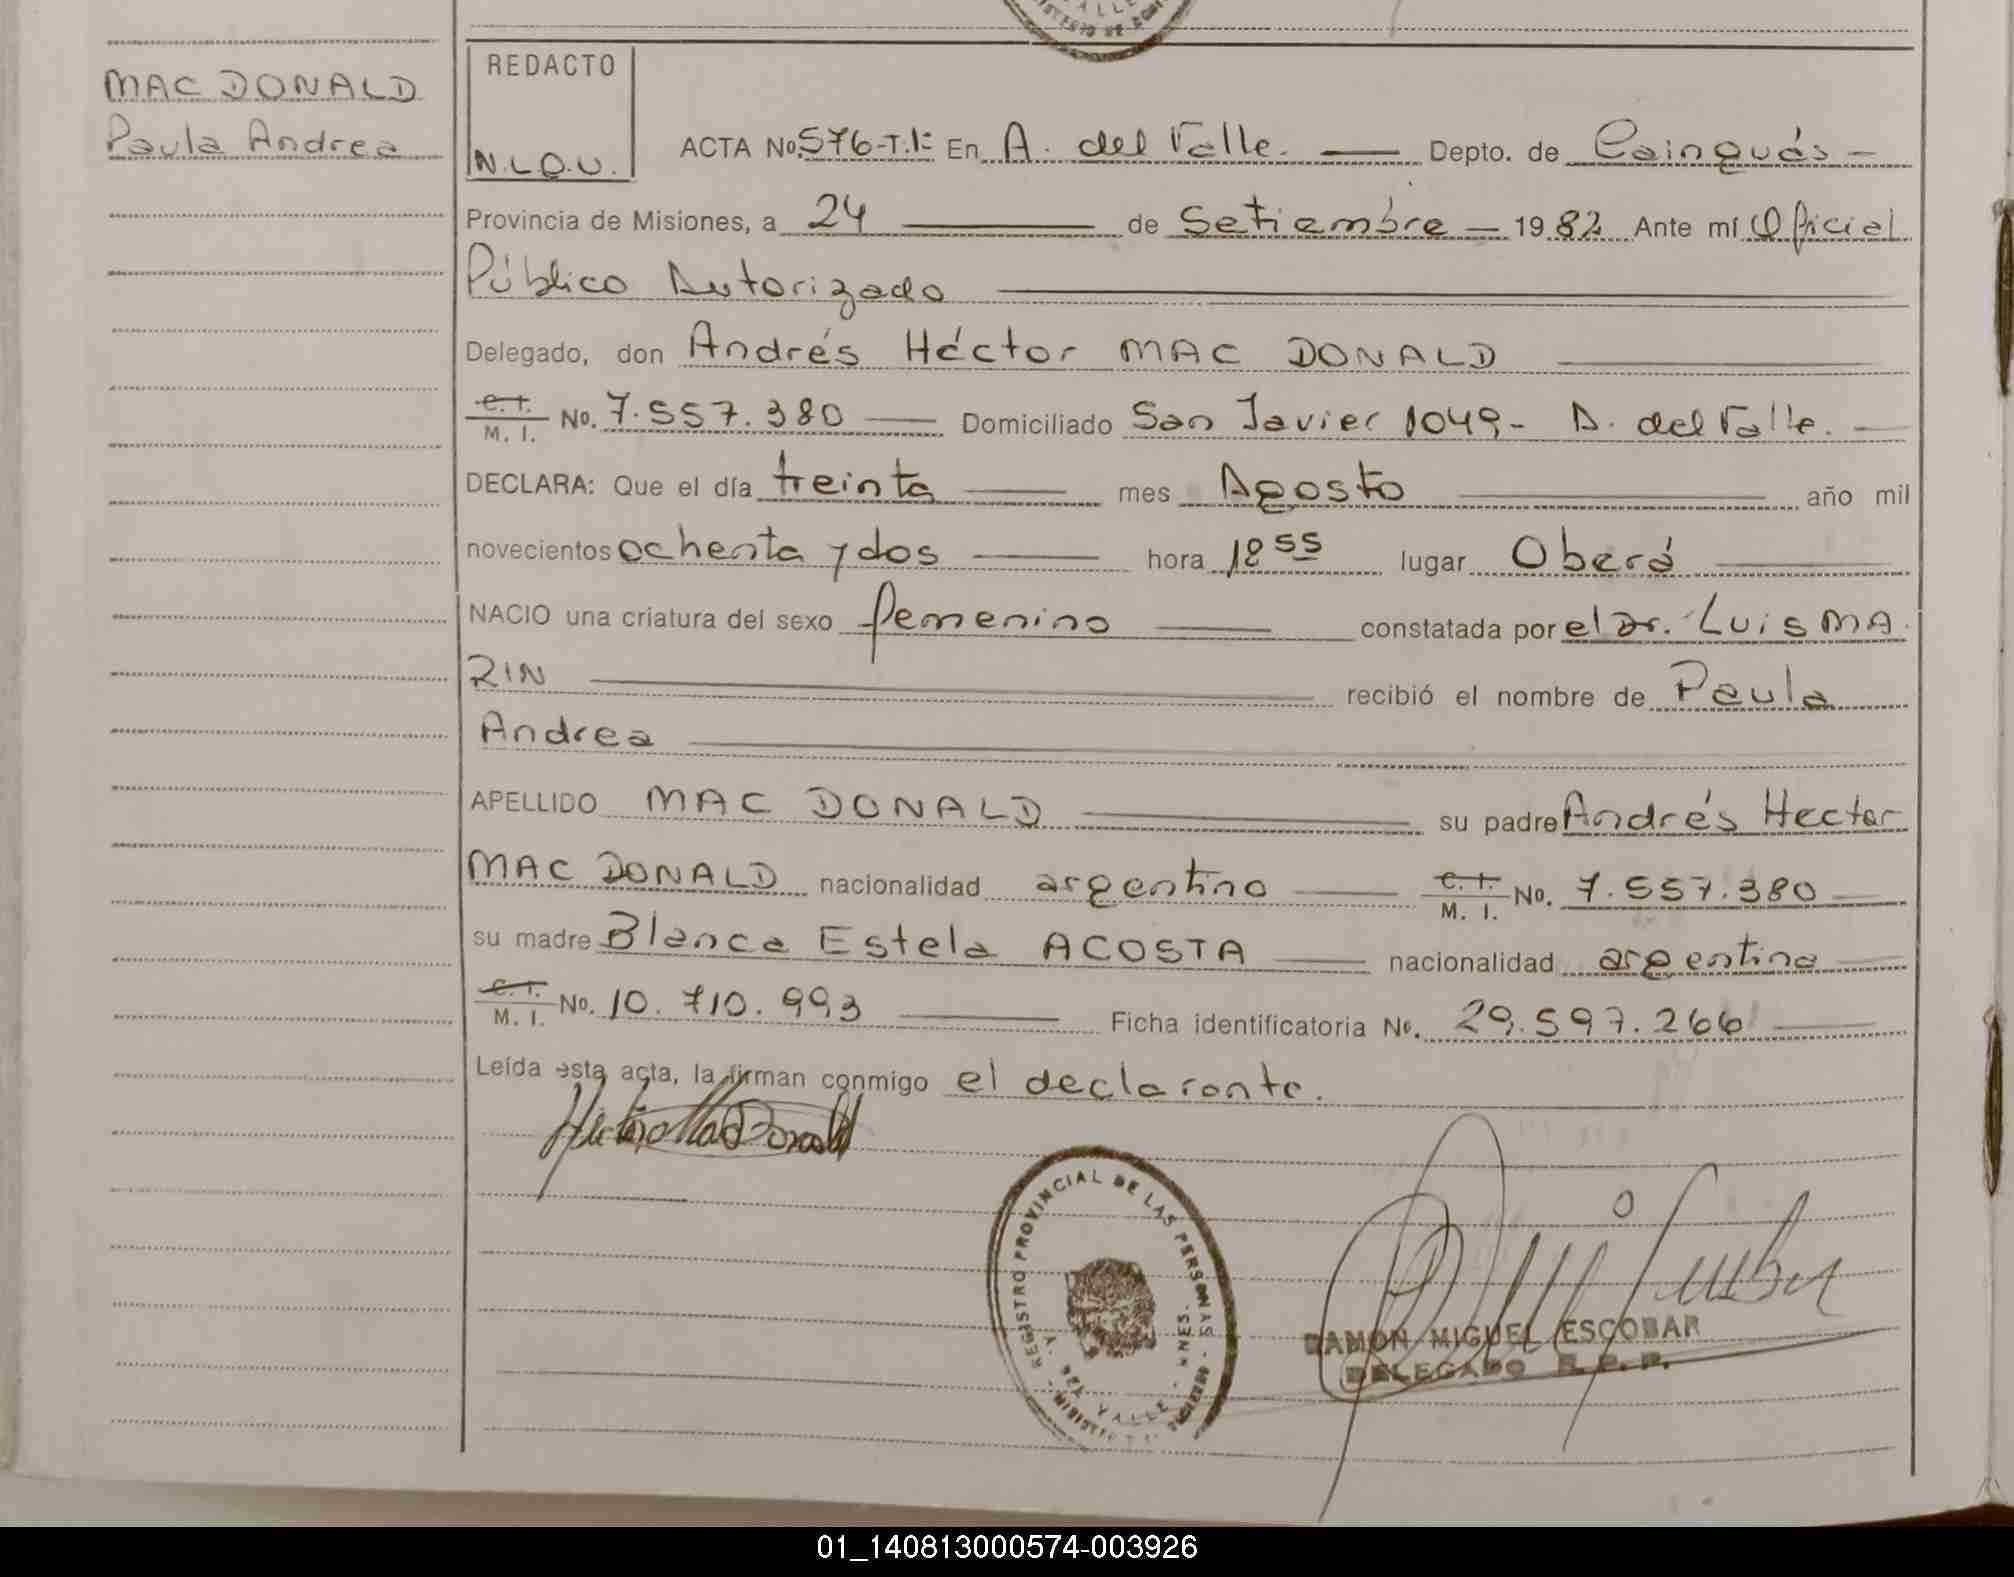 MAC DONALD
Paula Andrea
REDACTO
N.L.D.U.
ACTA No. 576-T.I: En A. del Valle. Depto. de Cainguás
Provincia de Misiones, a 24 de Setiembre 1982 Ante mí Oficial
Público Autorizado
Delegado, don Andrés Héctor MAC DONALD
C.I. M. I. No. 7.557.380 Domiciliado San Javier 1049- A. del Valle.
DECLARA: Que el día treinta mes Agosto año mil
novecientos ochenta y dos hora 18 55 lugar Oberá
NACIO una criatura del sexo femenino constatada por el Dr. Luis MA
RIN recibió el nombre de Paula
Andrea
APELLIDO MAC DONALD su padre Andrés Hector
MAC DONALD nacionalidad argentino C.I. M. I. No. 7.557.380
su madre Blanca Estela ACOSTA nacionalidad argentina
C.I. M. I. No. 10.710.993 Ficha identificatoria No. 29.597.266
Leída esta acta, la firman conmigo el declarante.
REGISTRO PROVINCIAL DE LAS PERSONAS
DEL VALLE - MNES.
RAMON MIGUEL ESCOBAR
DELEGADO R. P. P.
01_140813000574-003926